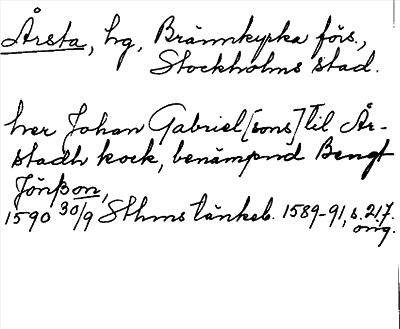 Årsta, hg, Brännkyrka förs.,
Stockholms stad.
her Johan Gabriel[sons] til År-
stadh kock, benämpnd Bengt
Jönßon,
1590 30/9 Sthms tänkeb. 1589-91, s. 217.
orig.